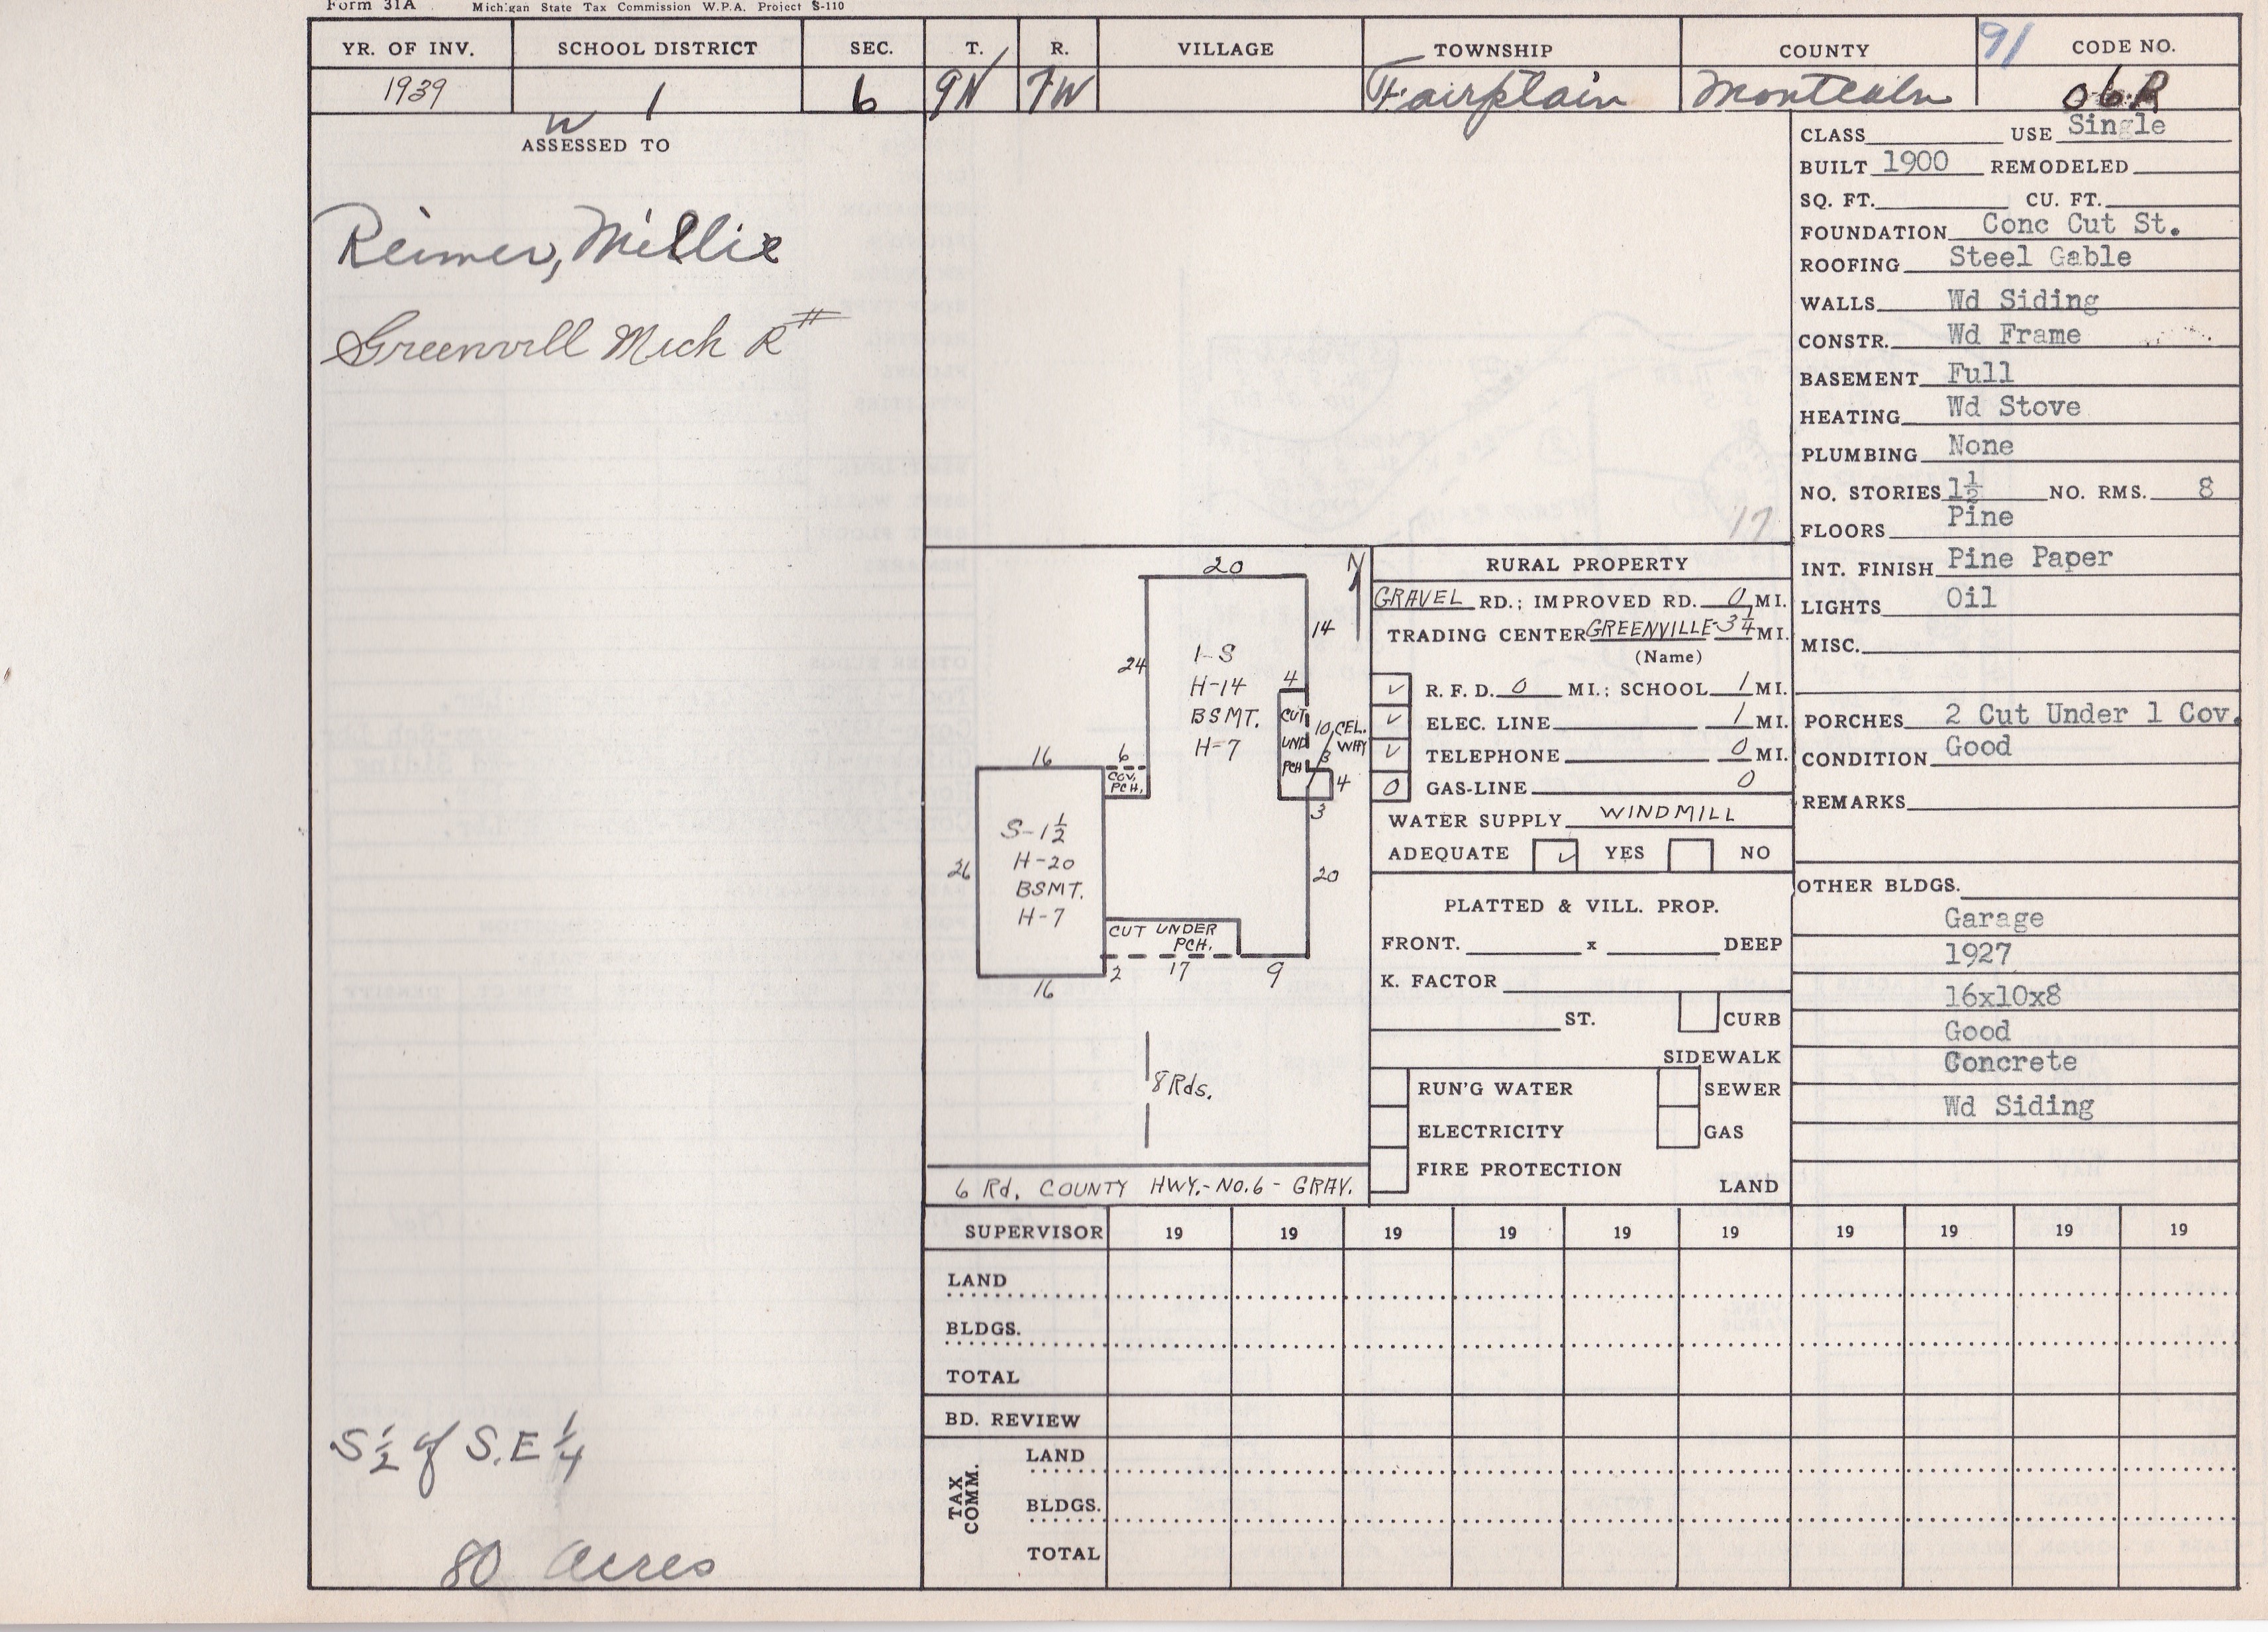 Form 31A Michigan State Tax Commission W.P.A. Project S-110
YR. OF INV. SCHOOL DISTRICT SEC. T. R. VILLAGE TOWNSHIP COUNTY 91 CODE NO.
1939 1 6 9N 7W Fairplain Montcalm 06.R
W 1
ASSESSED TO
Reimer, Millie
Greenvill Mich R#
S ½ of S.E ¼
80 Acres
17
20
N
14
24
1-S
H-14
BSMT.
H-7
4
CUT
UND
PCH
10
CEL.
WAY
3
4
3
16
6
COV.
PCH.
S-1½
H-20
BSMT.
H-7
26
20
CUT UNDER
PCH.
2 17 9
16
8 Rds.
6 Rd. COUNTY HWY.-No.6 - GRAV.
RURAL PROPERTY
GRAVEL RD.; IMPROVED RD. 0 MI.
TRADING CENTER GREENVILLE-3¼ MI.
(Name)
✓ R. F. D. 0 MI.; SCHOOL 1 MI.
✓ ELEC. LINE 1 MI.
✓ TELEPHONE 0 MI.
0 GAS-LINE 0
WATER SUPPLY WINDMILL
ADEQUATE ✓ YES NO
PLATTED & VILL. PROP.
FRONT. x DEEP
K. FACTOR
ST. CURB
SIDEWALK
RUN'G WATER SEWER
ELECTRICITY GAS
FIRE PROTECTION
LAND
CLASS USE Single
BUILT 1900 REMODELED
SQ. FT. CU. FT.
FOUNDATION Conc Cut St.
ROOFING Steel Gable
WALLS Wd Siding
CONSTR. Wd Frame
BASEMENT Full
HEATING Wd Stove
PLUMBING None
NO. STORIES 1½ NO. RMS. 8
FLOORS Pine
INT. FINISH Pine Paper
LIGHTS Oil
MISC.
PORCHES 2 Cut Under 1 Cov.
CONDITION Good
REMARKS
OTHER BLDGS.
Garage
1927
16x10x8
Good
Concrete
Wd Siding
SUPERVISOR 19 19 19 19 19 19 19 19 19 19
LAND
BLDGS.
TOTAL
BD. REVIEW
TAX COMM.
LAND
BLDGS.
TOTAL